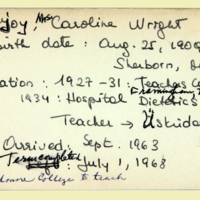 joy, Mrs Caroline Wright
irth date : Aug. 25, 190
Sherborn,
ation : 1927-31 : Teachers Co
Framingham,
1934 : Hospital Dietetics
Teacher → Üsküda
Arrived: Sept. 1963
Term completed: July 1, 1968
College to teach